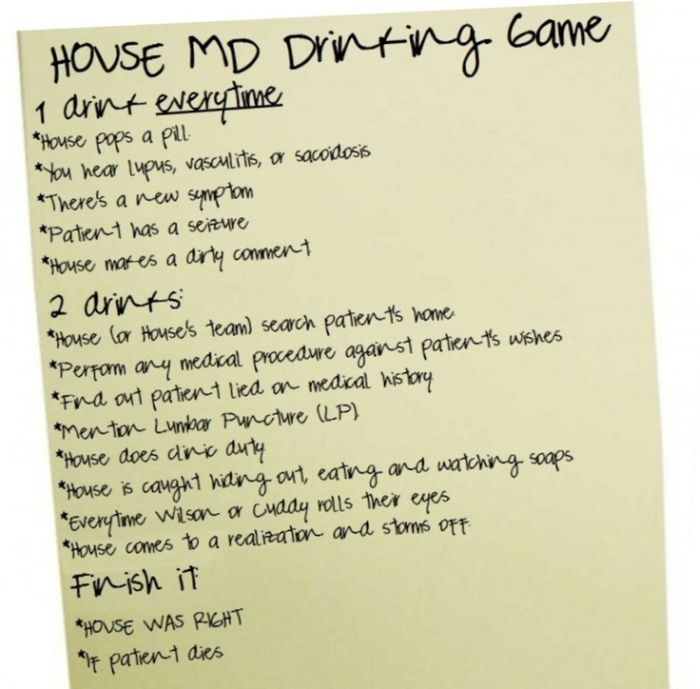 HOUSE MD Drinking Game
1 drink everytime
*House pops a pill.
*You hear lupus, vasculitis, or sacoidosis
*There's a new symptom
*Patient has a seizure
*House makes a dirty comment
2 drinks:
*House (or House's team) search patient's home.
*Perform any medical procedure against patient's wishes
*Find out patient lied on medical history
*Mention Lumbar Puncture (LP)
*House does clinic duty
*House is caught hiding out, eating and watching soaps
*Everytime Wilson or Cuddy rolls their eyes
*House comes to a realization and storms off.
Finish it
*HOUSE WAS RIGHT
*If patient dies